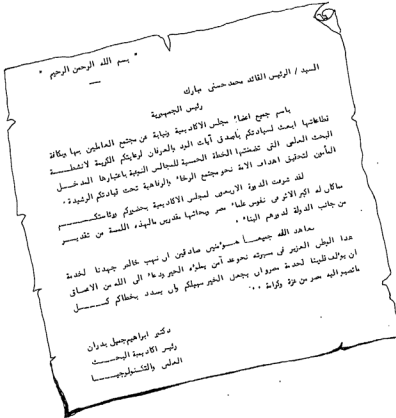 " بسم الله الرحمن الرحيم "
السيد / الرئيس القائد محمد حسنى مبارك
رئيس الجمهورية
باسم جميع اعضاء مجلس الاكاديمية ونيابة عن مجتمع العاملين بها وبكافة
قطاعاتها ابعث لسيادتكم بأصدق آيات الود والعرفان لرعايتكم الكريمة لانشطة
البحث العلمى التى تضمنتها الخطة الخمسية للمجالس النوعية باعتبارها المدخل
المأمون لتحقيق اهداف الامة نحو مجتمع الرخاء والرفاهية تحت قيادتكم الرشيدة .
لقد شرفت الدورة الاربعون لمجلس الاكاديمية بحضوركم ورئاستكم
مما كان له اكبر الاثر فى نفوس علماء مصر وبحاثها مقدرين مالهذه اللمسة من تقدير
من جانب الدولة لدورهم البناء .
نعاهد الله جميعا مؤمنين صادقين ان نهب خالص جهدنا لخدمة
هذا الوطن العزيز فى مسيرته نحو غد آمن يملؤه الخير ودعاء الى الله من الاعماق
ان يؤلف قلوبنا لخدمة مصر وان يجعل الخير سبيلكم وان يسدد بخطاكم كل
ماتصبو اليه مصر من عزة وكرامة ..
دكتور ابراهيم جميل بدران
رئيس اكاديمية البحث
العلمى والتكنولوجيا